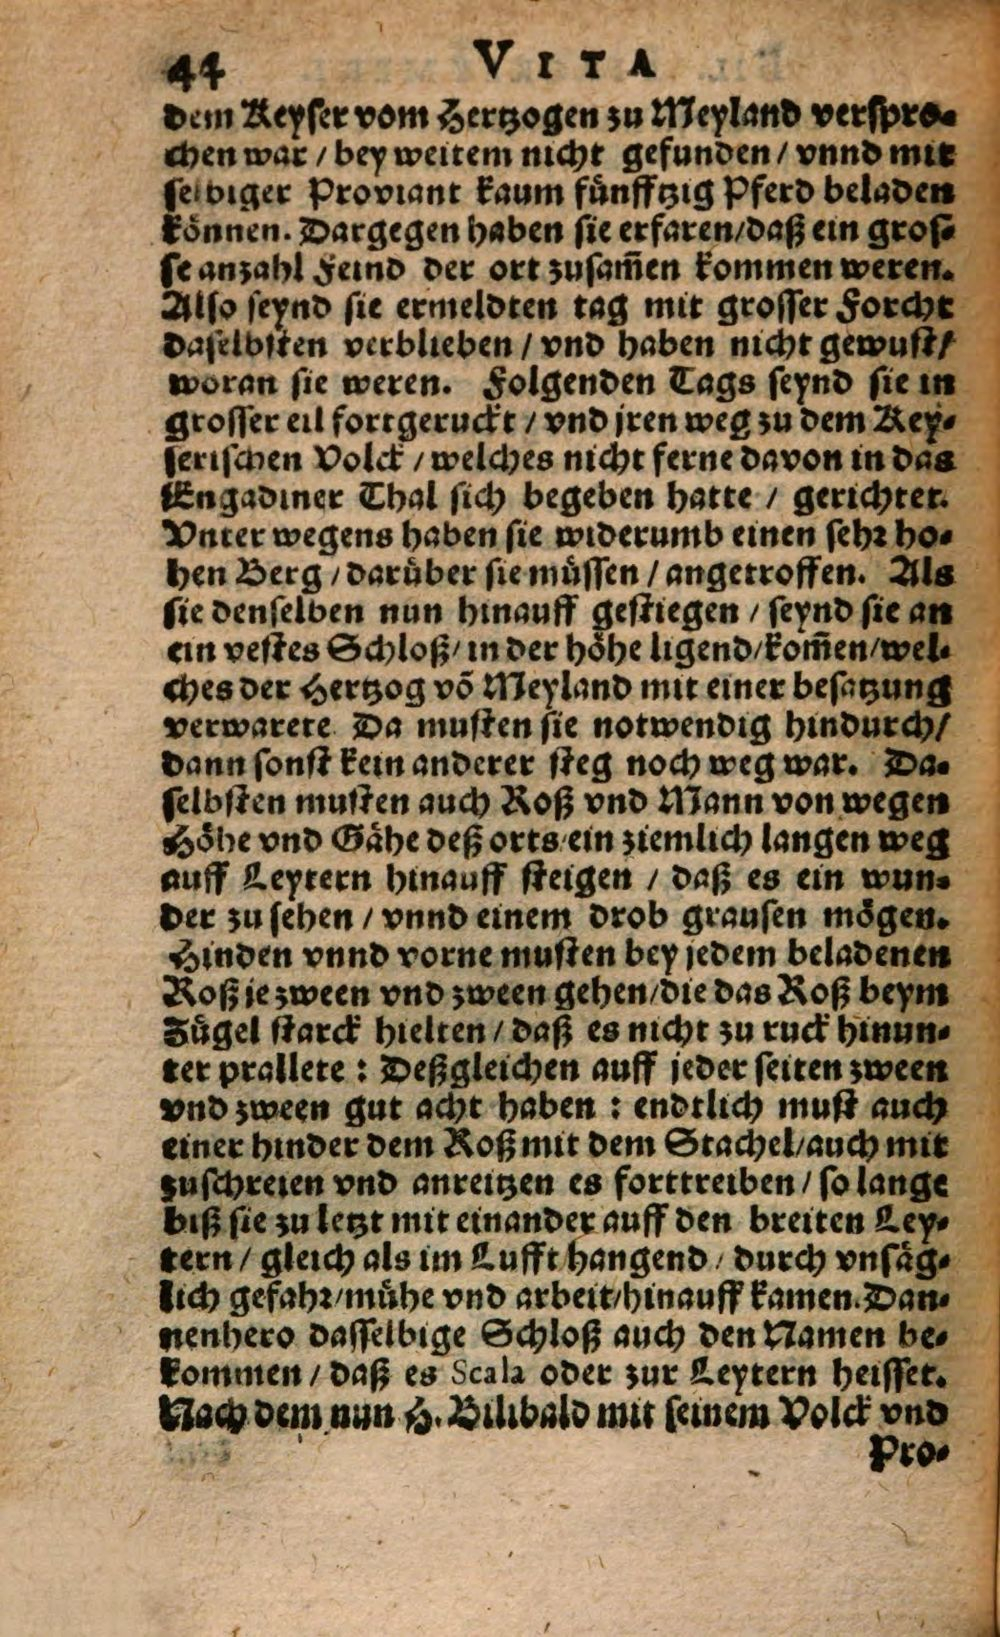 44 VITA
dem Keyser vom Hertzogen zu Meyland verspro-
chen war / bey weitem nicht gefunden / vnnd mit
selbiger Proviant kaum fünfftzig Pferd beladen
können. Dargegen haben sie erfaren/daß ein gros-
se anzahl Feind der ort zusam̃en kommen weren.
Also seynd sie ermeldten tag mit grosser Forcht
daselbsten verblieben / vnd haben nicht gewust/
woran sie weren. Folgenden Tags seynd sie in
grosser eil fortgeruckt / vnd jren weg zu dem Key-
serischen Volck / welches nicht ferne davon in das
Engadiner Thal sich begeben hatte / gerichtet.
Vnter wegens haben sie widerumb einen sehr ho-
hen Berg / darüber sie müssen / angetroffen. Als
sie denselben nun hinauff gestiegen / seynd sie an
ein vestes Schloß/ in der höhe ligend/kom̃en/wel-
ches der Hertzog võ Meyland mit einer besatzung
verwarete. Da musten sie notwendig hindurch/
dann sonst kein anderer steg noch weg war. Da-
selbsten musten auch Roß vnd Mann von wegen
Höhe vnd Gähe deß orts ein ziemlich langen weg
auff Leytern hinauff steigen / daß es ein wun-
der zu sehen / vnnd einem drob grausen mögen.
Hinden vnnd vorne musten bey jedem beladenen
Roß je zween vnd zween gehen/die das Roß beym
Zügel starck hielten / daß es nicht zu ruck hinun-
ter prallete : Deßgleichen auff jeder seiten zween
vnd zween gut acht haben : endtlich must auch
einer hinder dem Roß mit dem Stachel/auch mit
zuschreien vnd anreitzen es forttreiben / so lange
biß sie zu letzt mit einander auff den breiten Ley-
tern / gleich als im Lufft hangend / durch vnsäg-
lich gefahr/mühe vnd arbeit/hinauff kamen. Dan-
nenhero dasselbige Schloß auch den Namen be-
kommen / daß es Scala oder zur Leytern heisset.
Nach dem nun H. Bilibald mit seinem Volck vnd
Pro-